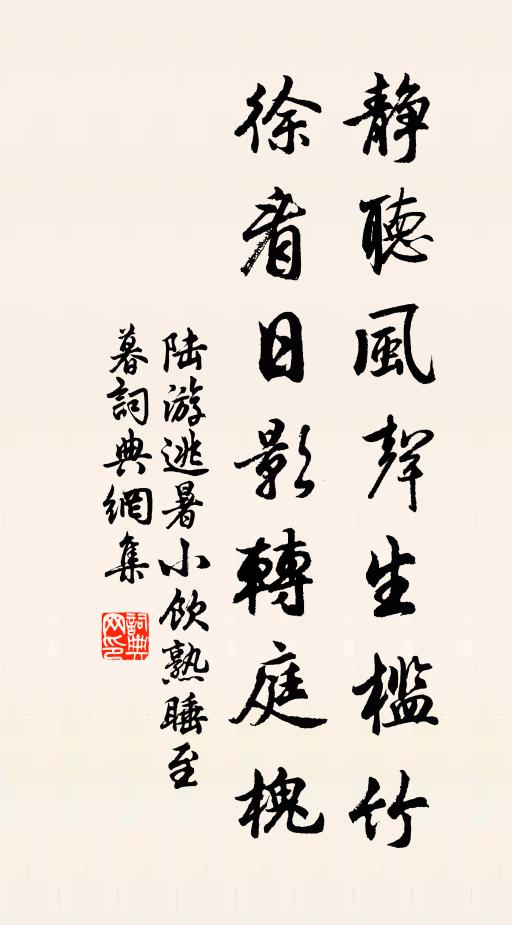 靜聽風聲生檻竹
徐看日影轉庭槐
陆游逃暑小飲熟睡至
暮詞典網集
詞典
网印